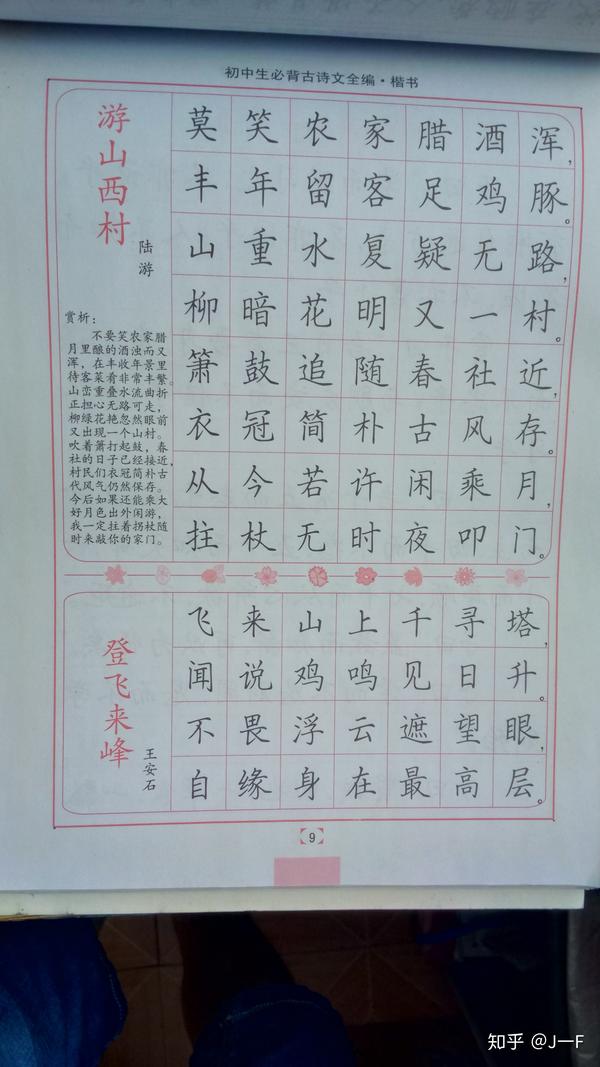 初中生必背古诗文全编·楷书
游山西村
陆游
莫笑农家腊酒浑，
丰年留客足鸡豚。
山重水复疑无路，
柳暗花明又一村。
箫鼓追随春社近，
衣冠简朴古风存。
从今若许闲乘月，
拄杖无时夜叩门。
赏析：
不要笑农家腊
月里酿的酒浊而又
浑，在丰收年景里
待客菜肴非常丰繁。
山峦重叠水流曲折
正担心无路可走，
柳绿花艳忽然眼前
又出现一个山村。
吹着箫打起鼓，春
社的日子已经接近，
村民们衣冠简朴古
代风气仍然保存。
今后如果还能乘大
好月色出外闲游，
我一定拄着拐杖随
时来敲你的家门。
登飞来峰
王安石
飞来山上千寻塔，
闻说鸡鸣见日升。
不畏浮云遮望眼，
自缘身在最高层。
9
知乎 @J一F